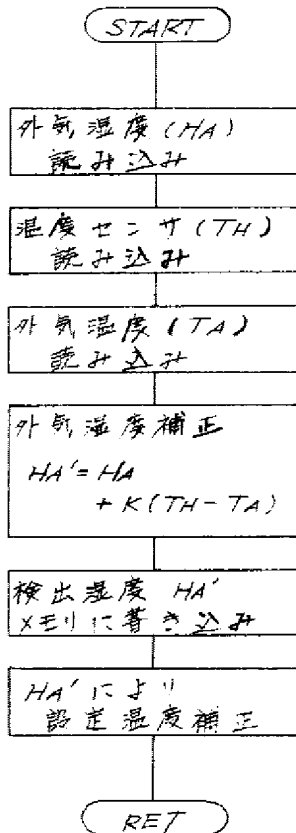 START
外気湿度(HA)
読み込み
温度センサ(TH)
読み込み
外気温度(TA)
読み込み
外気湿度補正
HA'=HA
+K(TH-TA)
検出湿度 HA'
メモリに書き込み
HA'により
設定温度補正
RET